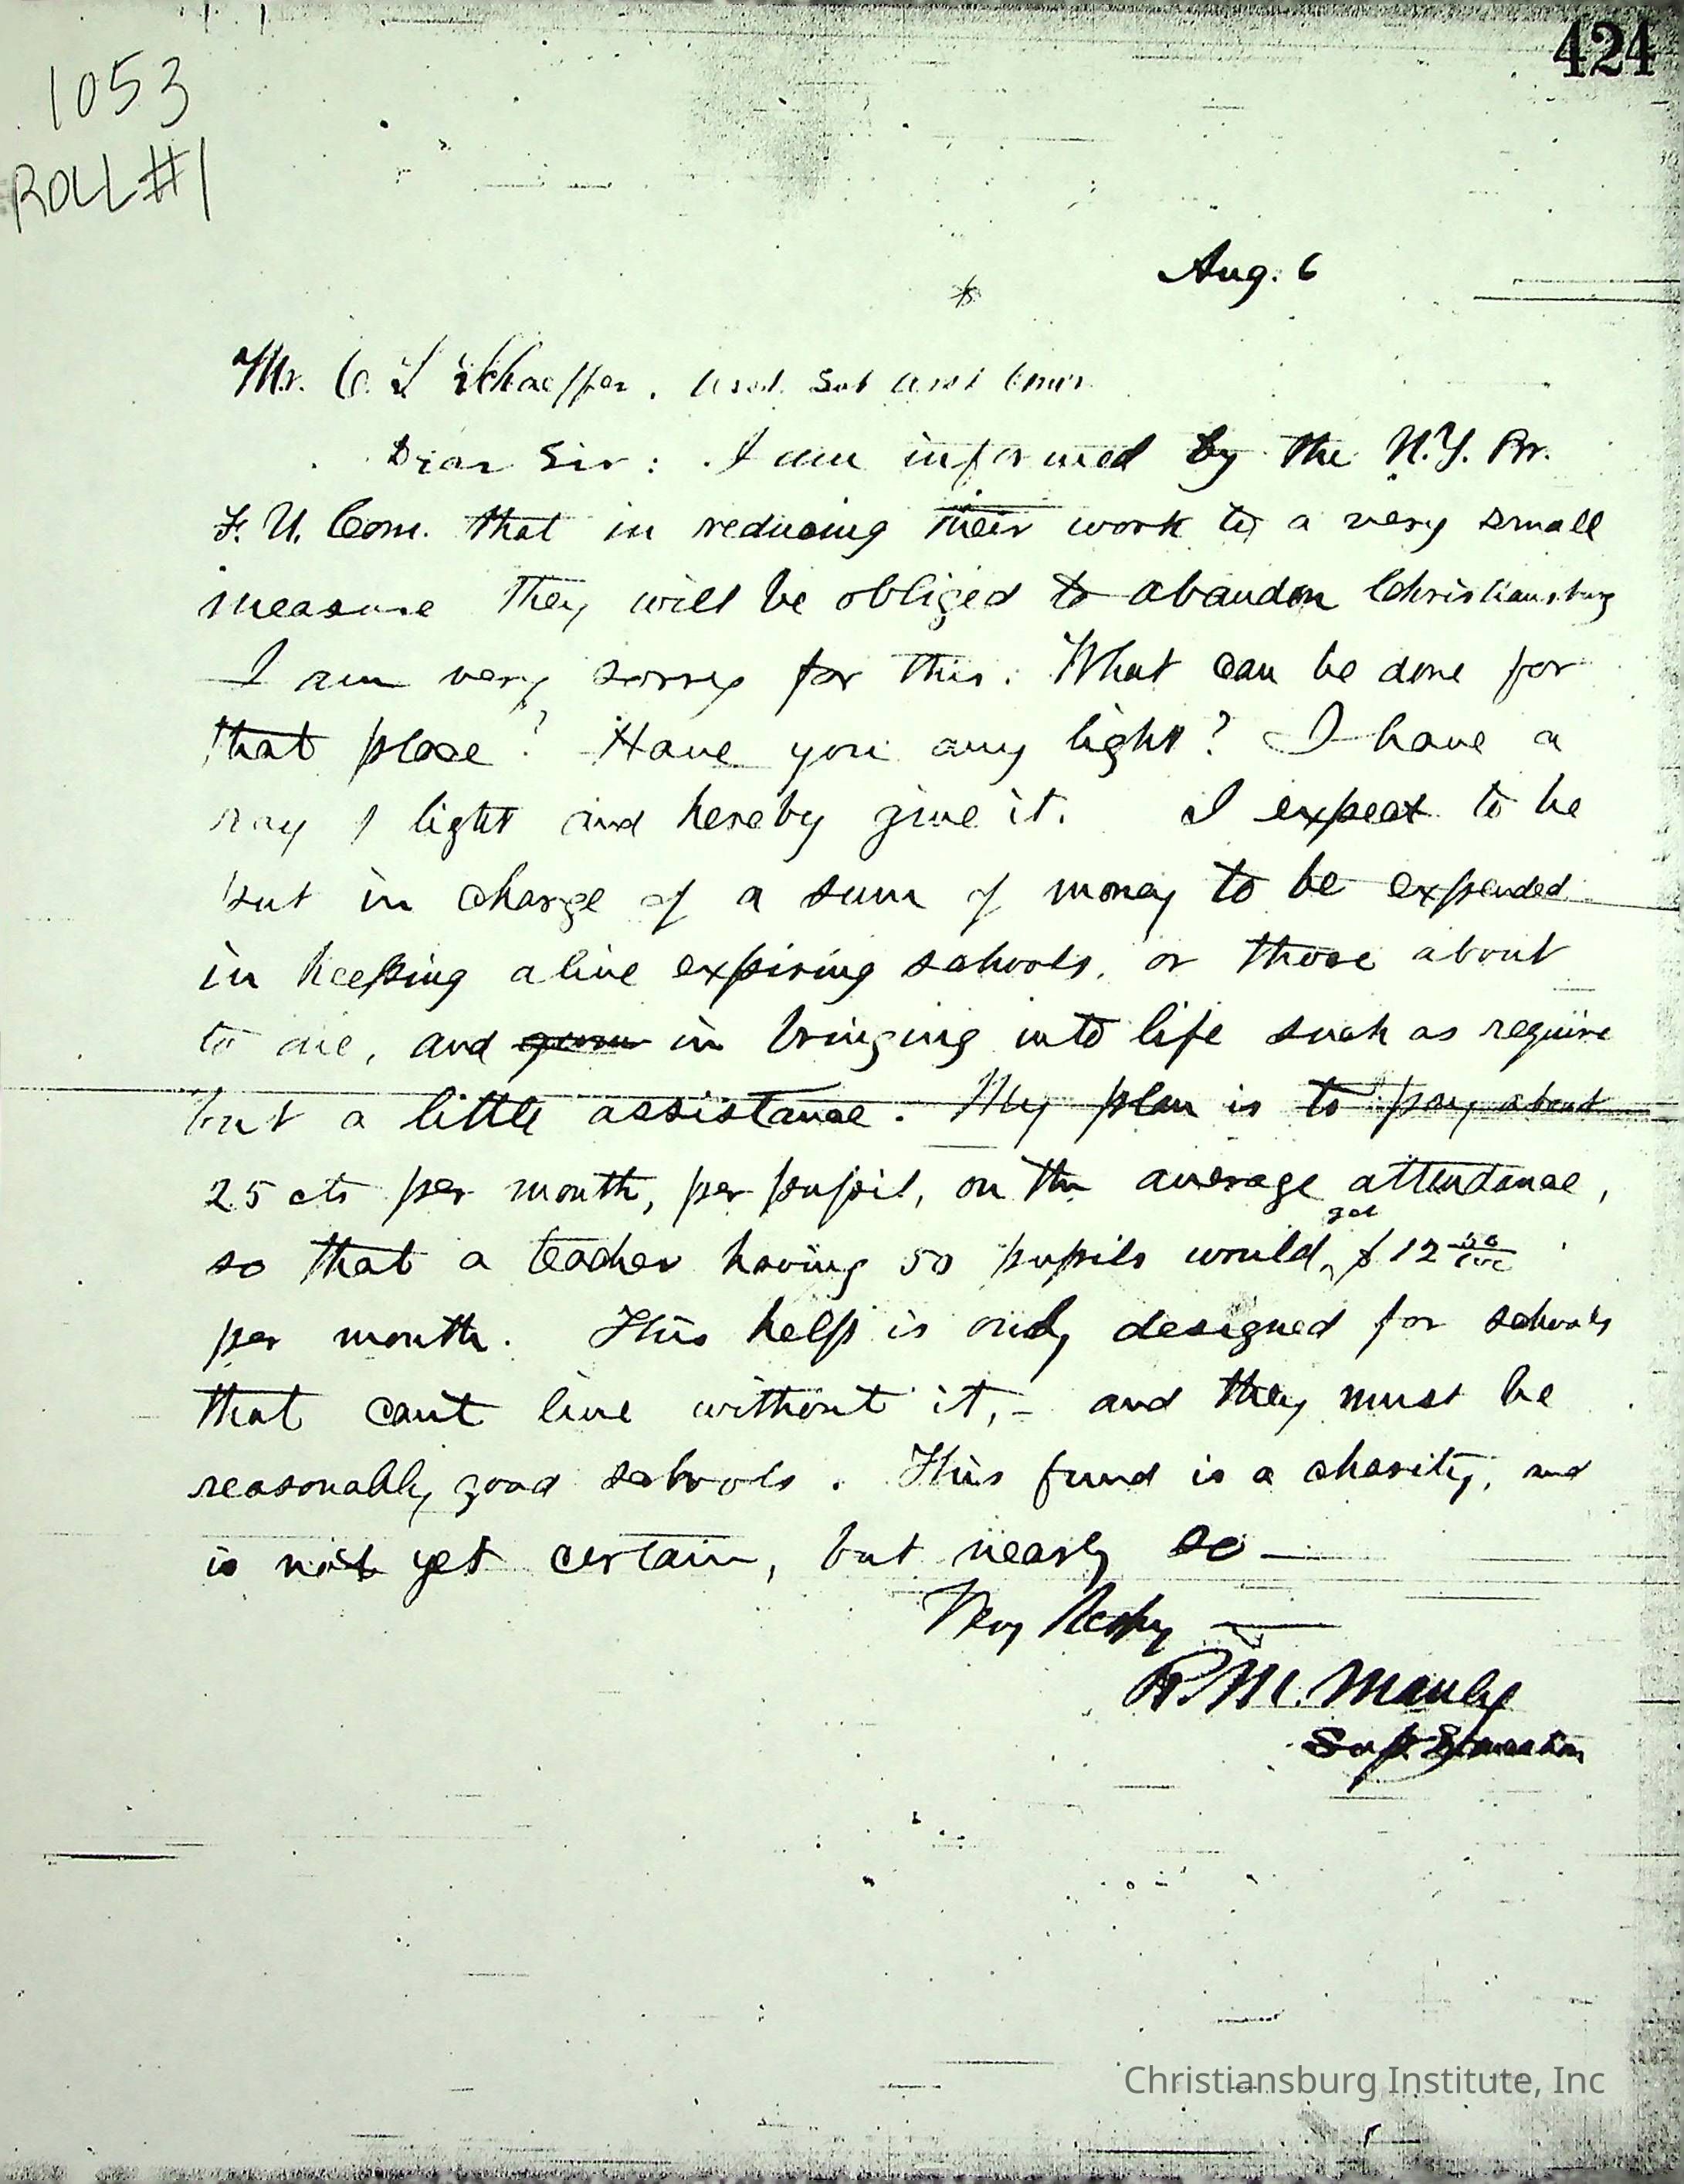 424
1053
ROLL #1
Aug. 6
Mr. C. S Schaeffer. Asst. Sub Asst Comr.
Dear Sir: I am informed by the N.Y. Br.
F. U. Com. that in reducing their work to a very small
measure they will be obliged to abandon Christiansburg
I am very sorry for this. What can be done for
that place? Have you any light? I have a
ray of light and hereby give it. I expect to be
put in charge of a sum of money to be expended
in keeping alive expiring schools, or those about
to die, and in bringing into life such as require
but a little assistance. My plan is to pay about
25 cts per month, per pupil, on the average attendance,
so that a teacher having 50 pupils would get $12 50/100
per month. This help is only designed for schools
that can't live without it, – and they must be
reasonably good schools. This fund is a charity, and
is not yet certain, but nearly so —
Very Respy —
R. M. Manly
Supt Education
Christiansburg Institute, Inc